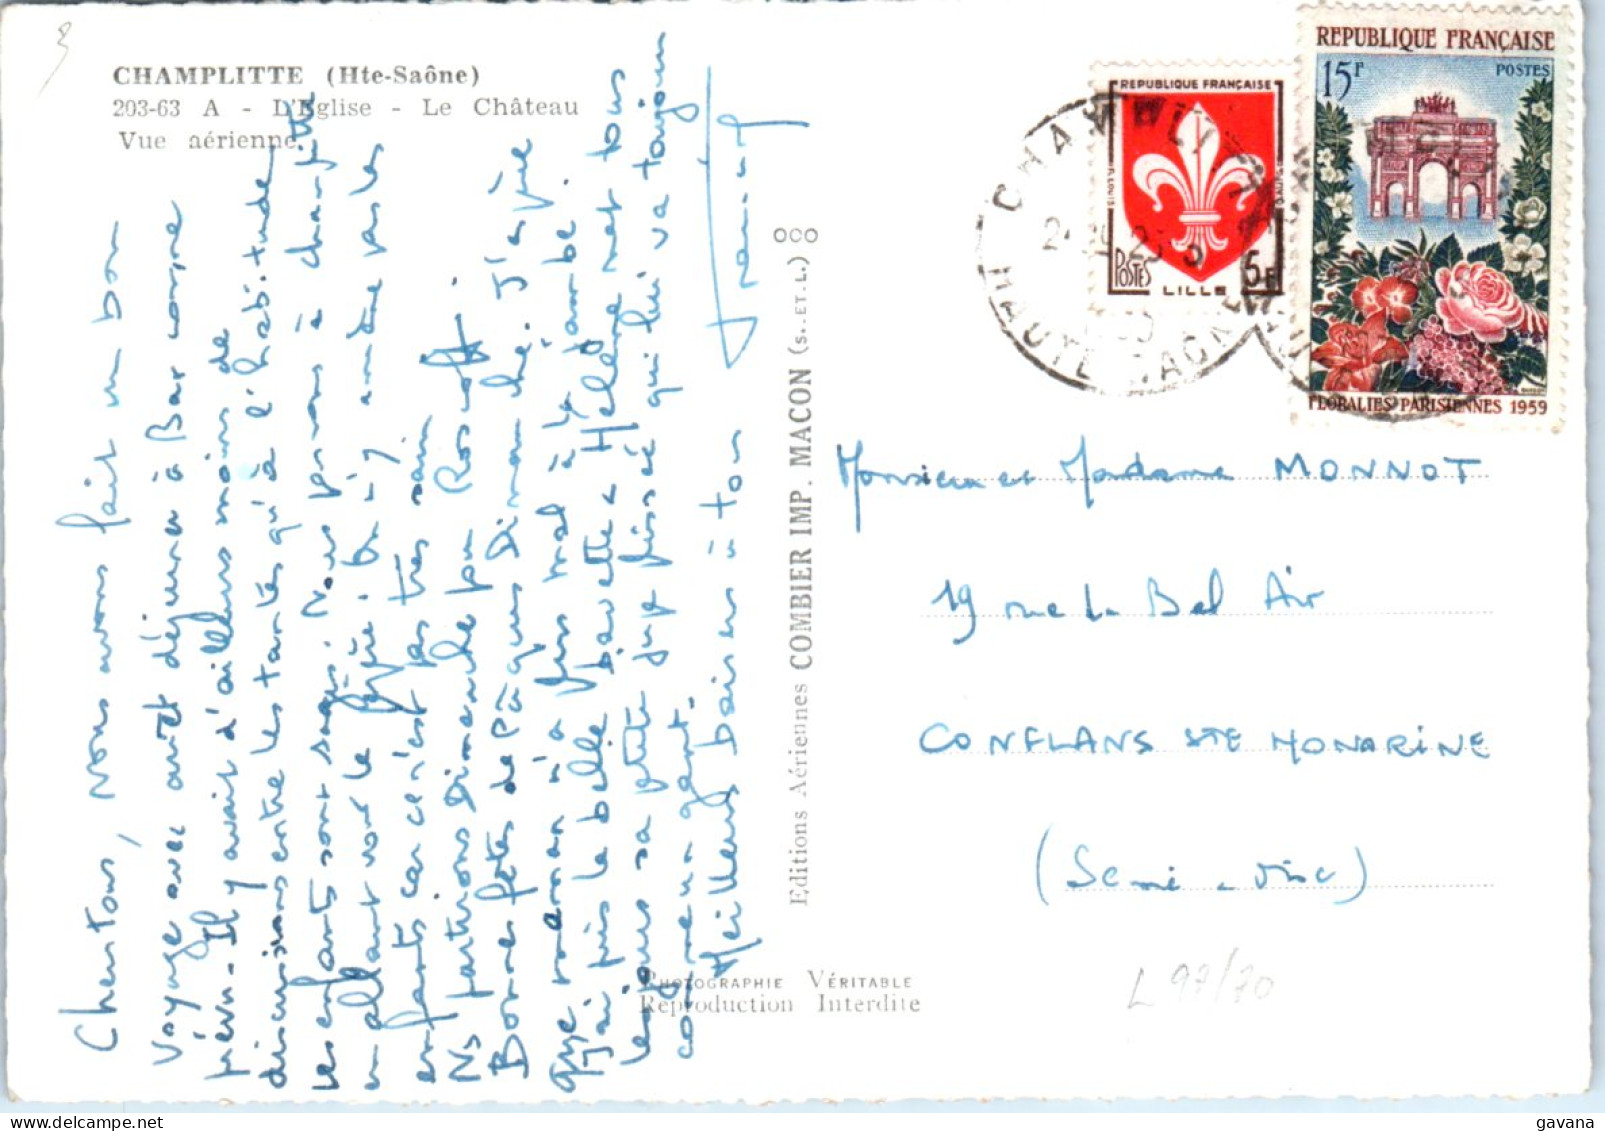 CHAMPLITTE (Hte-Saône)
203-63 A - L'Eglise - Le Château
Vue aérienne.
Chers tous, nous avons fait un bon
voyage avec arrêt déjeuner à Bar comme
prévu. Il y avait d'ailleurs moins de
discussions entre les tantes qu'à l'habitude
les enfants sont sages. Nous pensons à champlitte
en allant voir le pépé. On n'y amène pas les
enfants car ce n'est pas très sain
Ns partirons Dimanche pr Roscoff.
Bonnes fêtes de Pâques Dimanche. J'espère
que maman n'a plus mal à la jambe.
J'ai pris la belle bavette et Hélène met tous
les jours sa petite jupe plissée qui lui va toujours
comme un gant.
Meilleurs baisers à tous
Editions Aériennes COMBIER IMP. MACON (S.-ET-L.)
OCO
PHOTOGRAPHIE VÉRITABLE
Reproduction Interdite
REPUBLIQUE FRANÇAISE
POSTES
5F
LILLE
REPUBLIQUE FRANÇAISE
15F
POSTES
FLORALIES PARISIENNES 1959
CHAMPLITTE
HAUTE SAONE
Monsieur et Madame MONNOT
19 rue de Bel Air
CONFLANS STE HONORINE
(Seine - Oise)
L 97/70
gavana